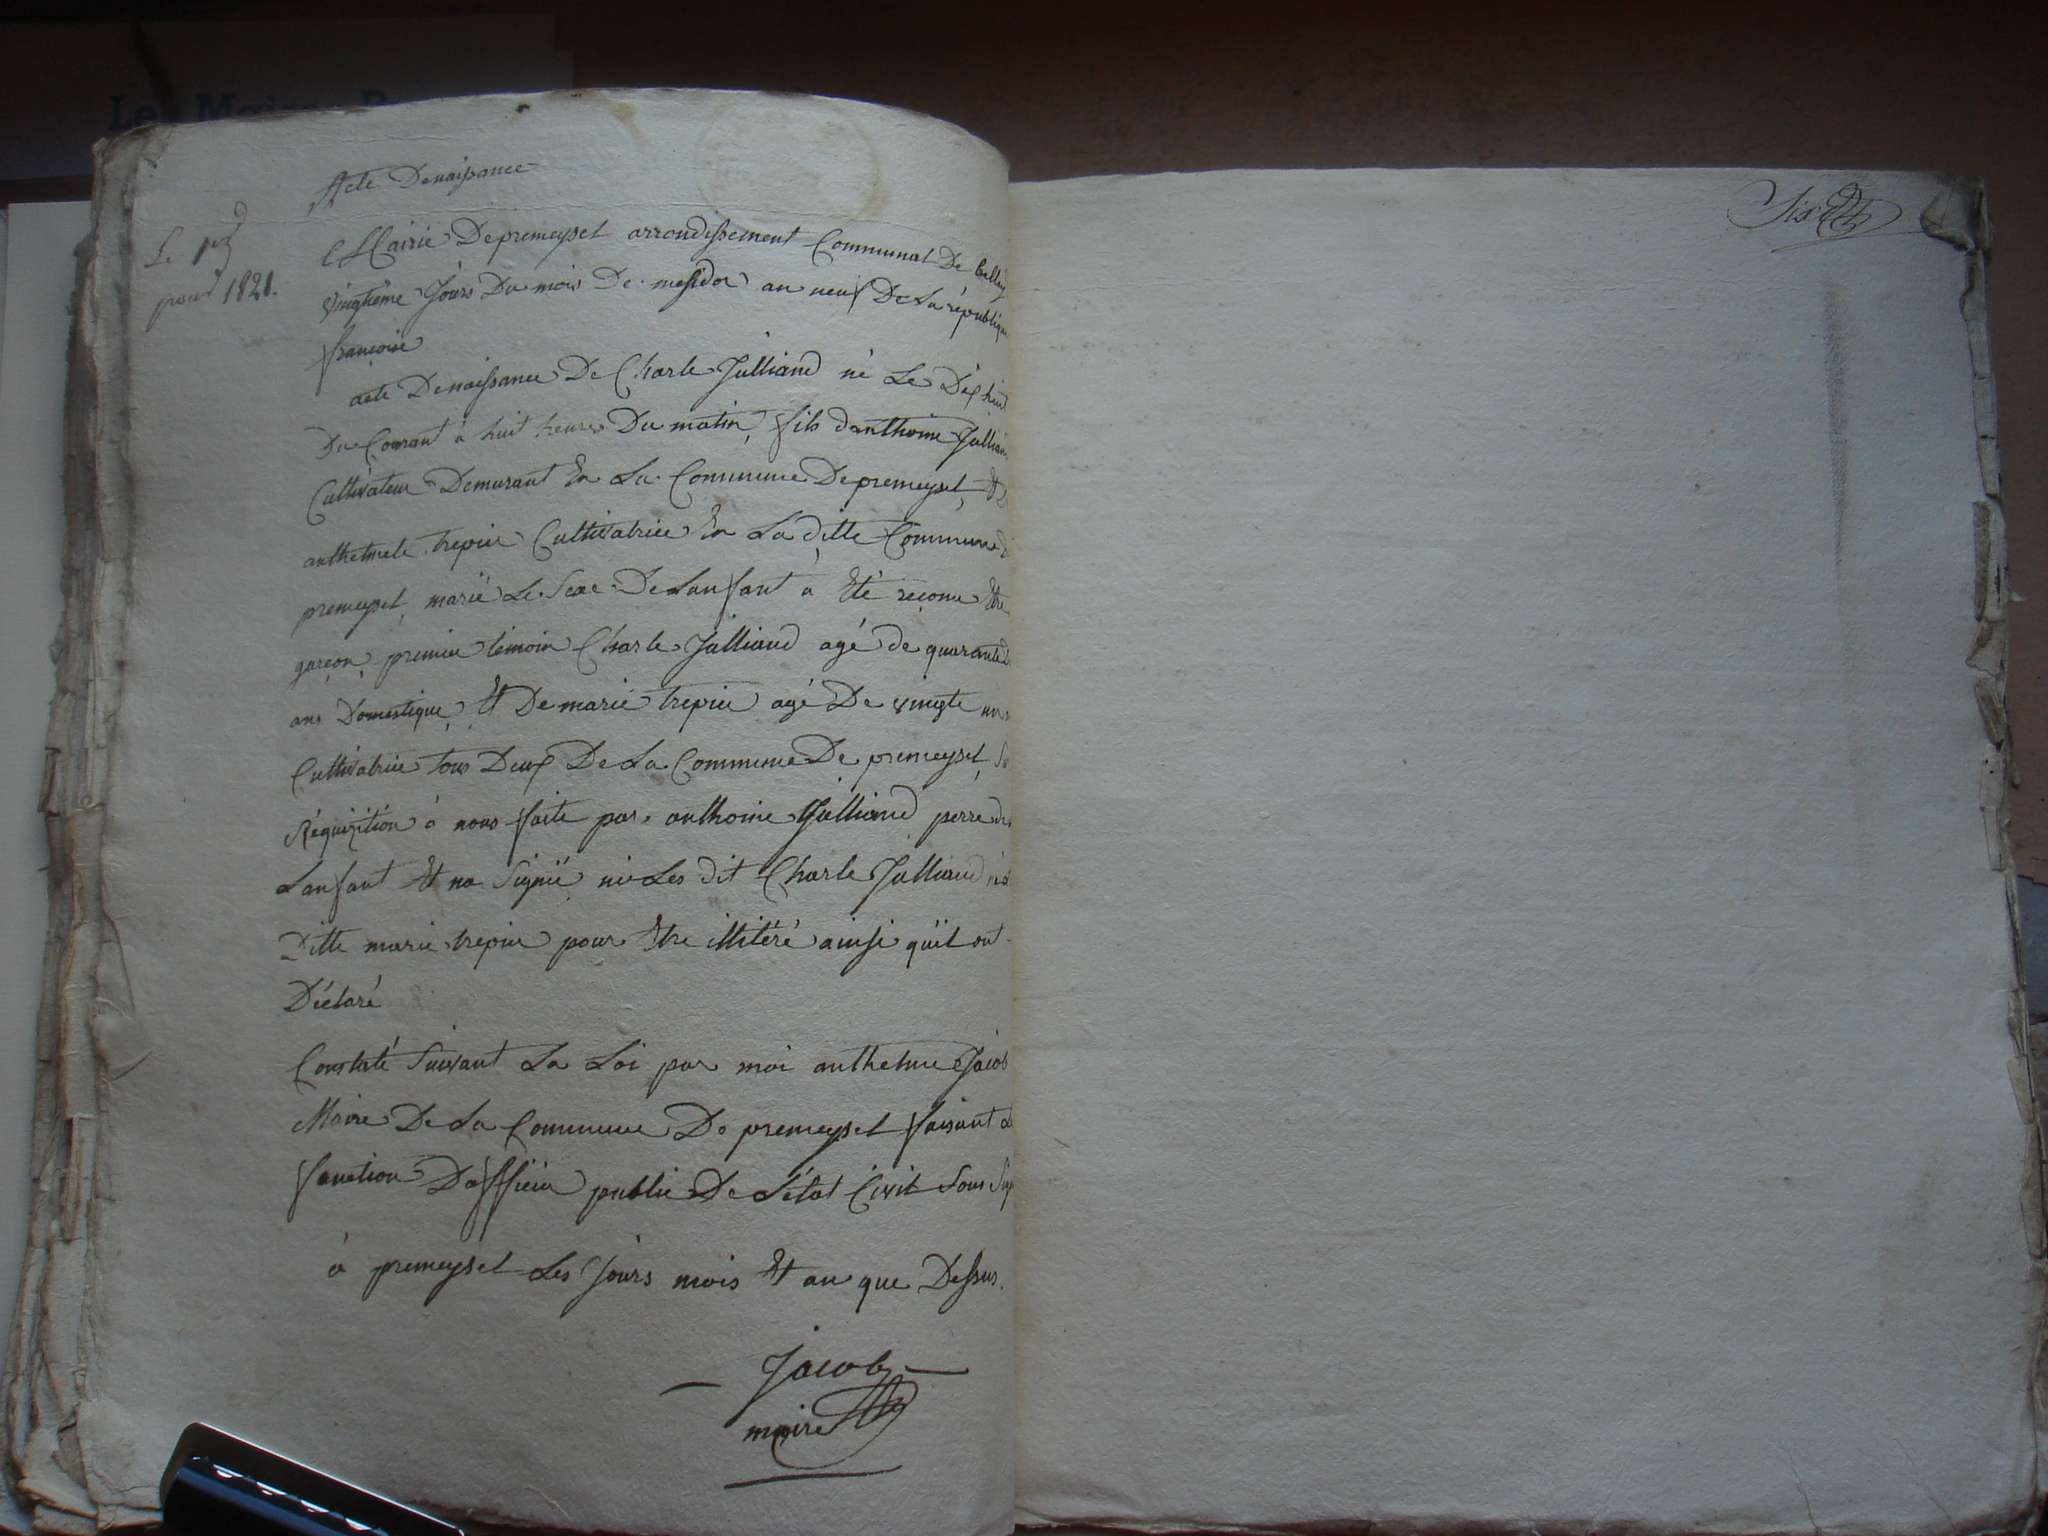 Acte Denaissance
Le
pour 1821.
Mairie Depremeyzel arrondissement Communal De Belley
vingtième Jours Du mois De messidor an neuf De La république
françoise
acte Denaissance De Charle Julliand né Le Dix huit
Du Courant à huit heures Du matin, fils danthoine Jullian
Cultivateur Demurant En La Commune Depremeyzel, Et
anthelmele trepier Cultivatrice En La ditte Commune
premeyzel, marié Le Sexe De Lanfant à Eté reconu Etre
garçon, premier témoin Charle Julliand agé de quarante
ans Domestique, Et De marie trepier agé De vingte
Cultivatrice tous Deux De La Commune De premeyzel,
Réquizition à nous faite par anthoine Julliand perre
Lanfant Et na Signié ni Les dit Charle Julliand
Ditte marie trepier pour Etre illitéré ainsi qu'il ont
Déclaré
Constaté Suivant La Loi par moi anthelme Jacob
Maire De La Commune De premeyzel faisant
fonction Dofficier public De Létat Civil Sous
à premeyzel Les Jours mois Et an que Dessus.
Jacob
maire
Six
Les Ma